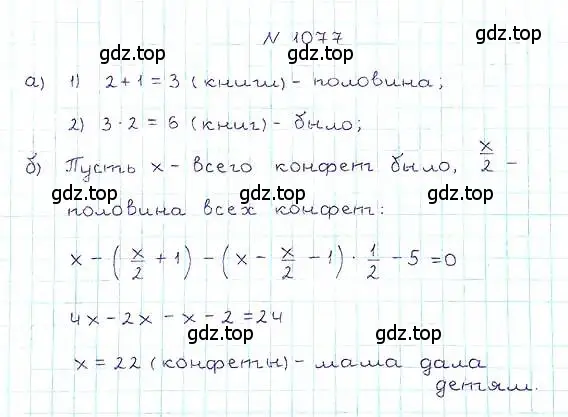 N 1077
gdz.top gdz.top
а) 1) 2 + 1 = 3 (книги) - половина;
2) 3 · 2 = 6 (книг) - было;
gdz.top gdz.top
б) Пусть x - всего конфет было, x/2 -
gdz.top gdz.top
половина всех конфет:
x - (x/2 + 1) - (x - x/2 - 1) · 1/2 - 5 = 0
gdz.top gdz.top
4x - 2x - x - 2 = 24
gdz.top gdz.top
x = 22 (конфеты) - мама дала
детям.
gdz.top